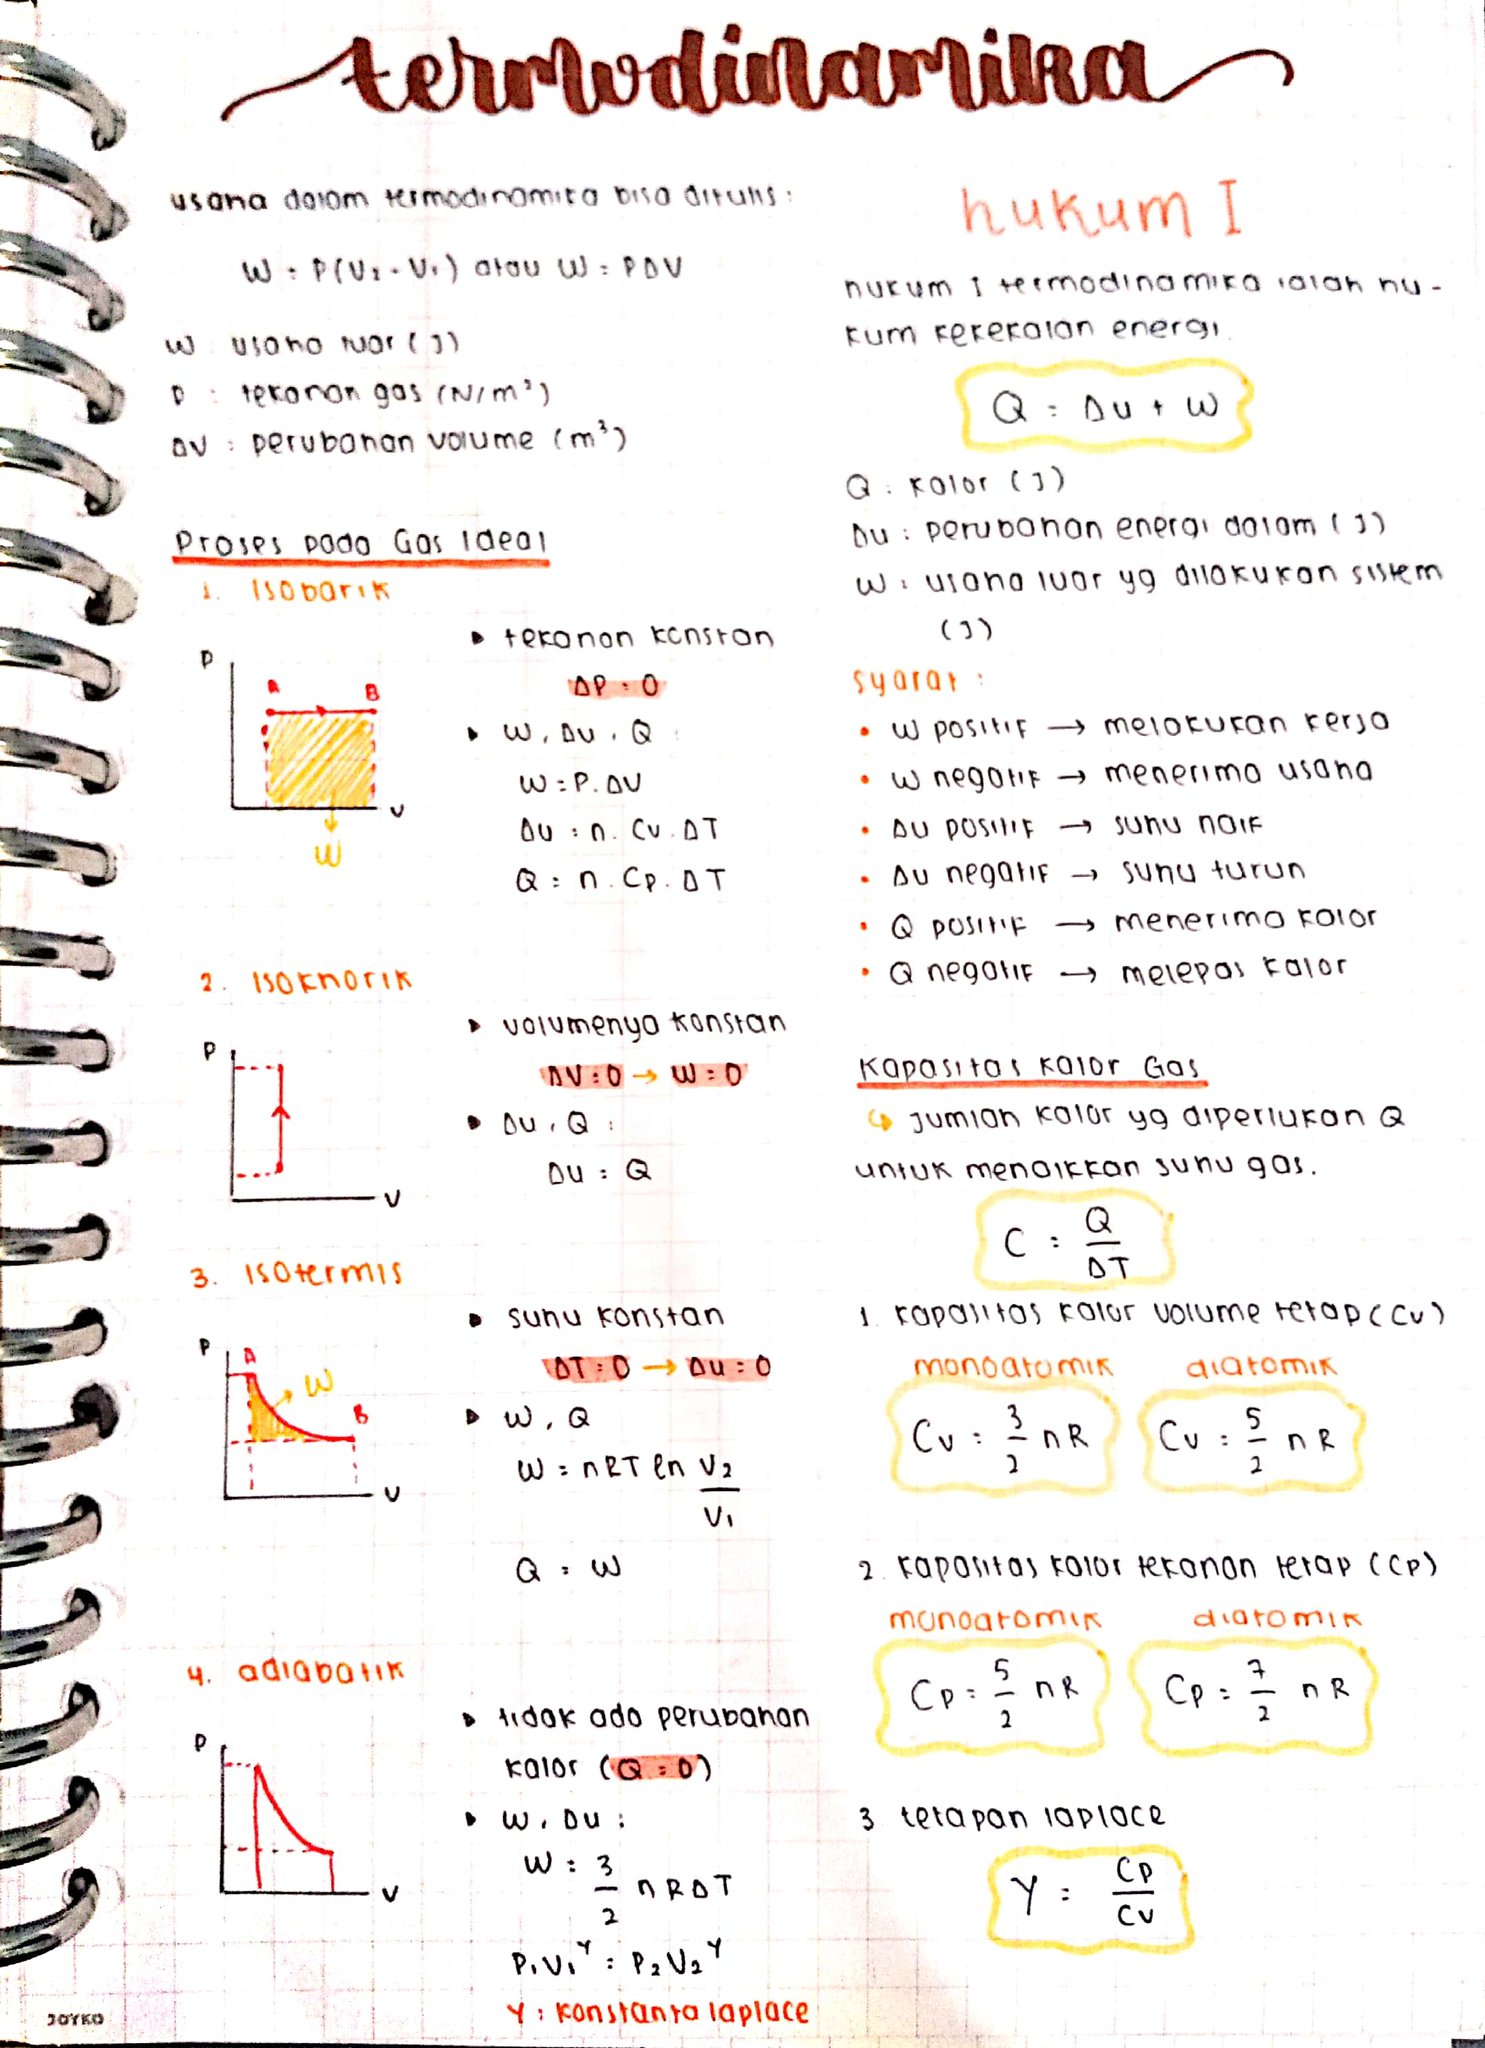 termodinamika
usaha dalam termodinamika bisa ditulis :
W = P(V₂ - V₁) atau W = PΔV
W : usaha luar (J)
P : tekanan gas (N/m²)
ΔV : perubahan volume (m³)
Proses pada Gas Ideal
1. Isobarik
P
A
B
V
W
▸ tekanan konstan
ΔP = 0
▸ W, ΔU, Q :
W = P. ΔV
ΔU = n. Cv. ΔT
Q = n. Cp. ΔT
2. Isokhorik
P
V
▸ volumenya konstan
ΔV = 0 → W = 0
▸ ΔU, Q :
ΔU = Q
3. Isotermis
P
A
W
B
V
▸ suhu konstan
ΔT = 0 → ΔU = 0
▸ W, Q
W = nRT ln V₂/V₁
Q = W
4. adiabatik
P
V
▸ tidak ada perubahan
kalor (Q = 0)
▸ W, ΔU :
W = 3/2 nRΔT
P₁V₁^γ = P₂V₂^γ
γ : konstanta laplace
JOYKO
hukum I
hukum I termodinamika ialah hu-
kum kekekalan energi.
Q = ΔU + W
Q : kalor (J)
ΔU : perubahan energi dalam (J)
W : usaha luar yg dilakukan sistem
(J)
syarat :
• W positif → melakukan kerja
• W negatif → menerima usaha
• ΔU positif → suhu naik
• ΔU negatif → suhu turun
• Q positif → menerima kalor
• Q negatif → melepas kalor
Kapasitas Kalor Gas
↳ jumlah kalor yg diperlukan Q
untuk menaikkan suhu gas.
C = Q/ΔT
1. Kapasitas kalor volume tetap (Cv)
monoatomik diatomik
Cv = 3/2 nR Cv = 5/2 nR
2. kapasitas kalor tekanan tetap (Cp)
monoatomik diatomik
Cp = 5/2 nR Cp = 7/2 nR
3 tetapan laplace
γ = Cp/Cv